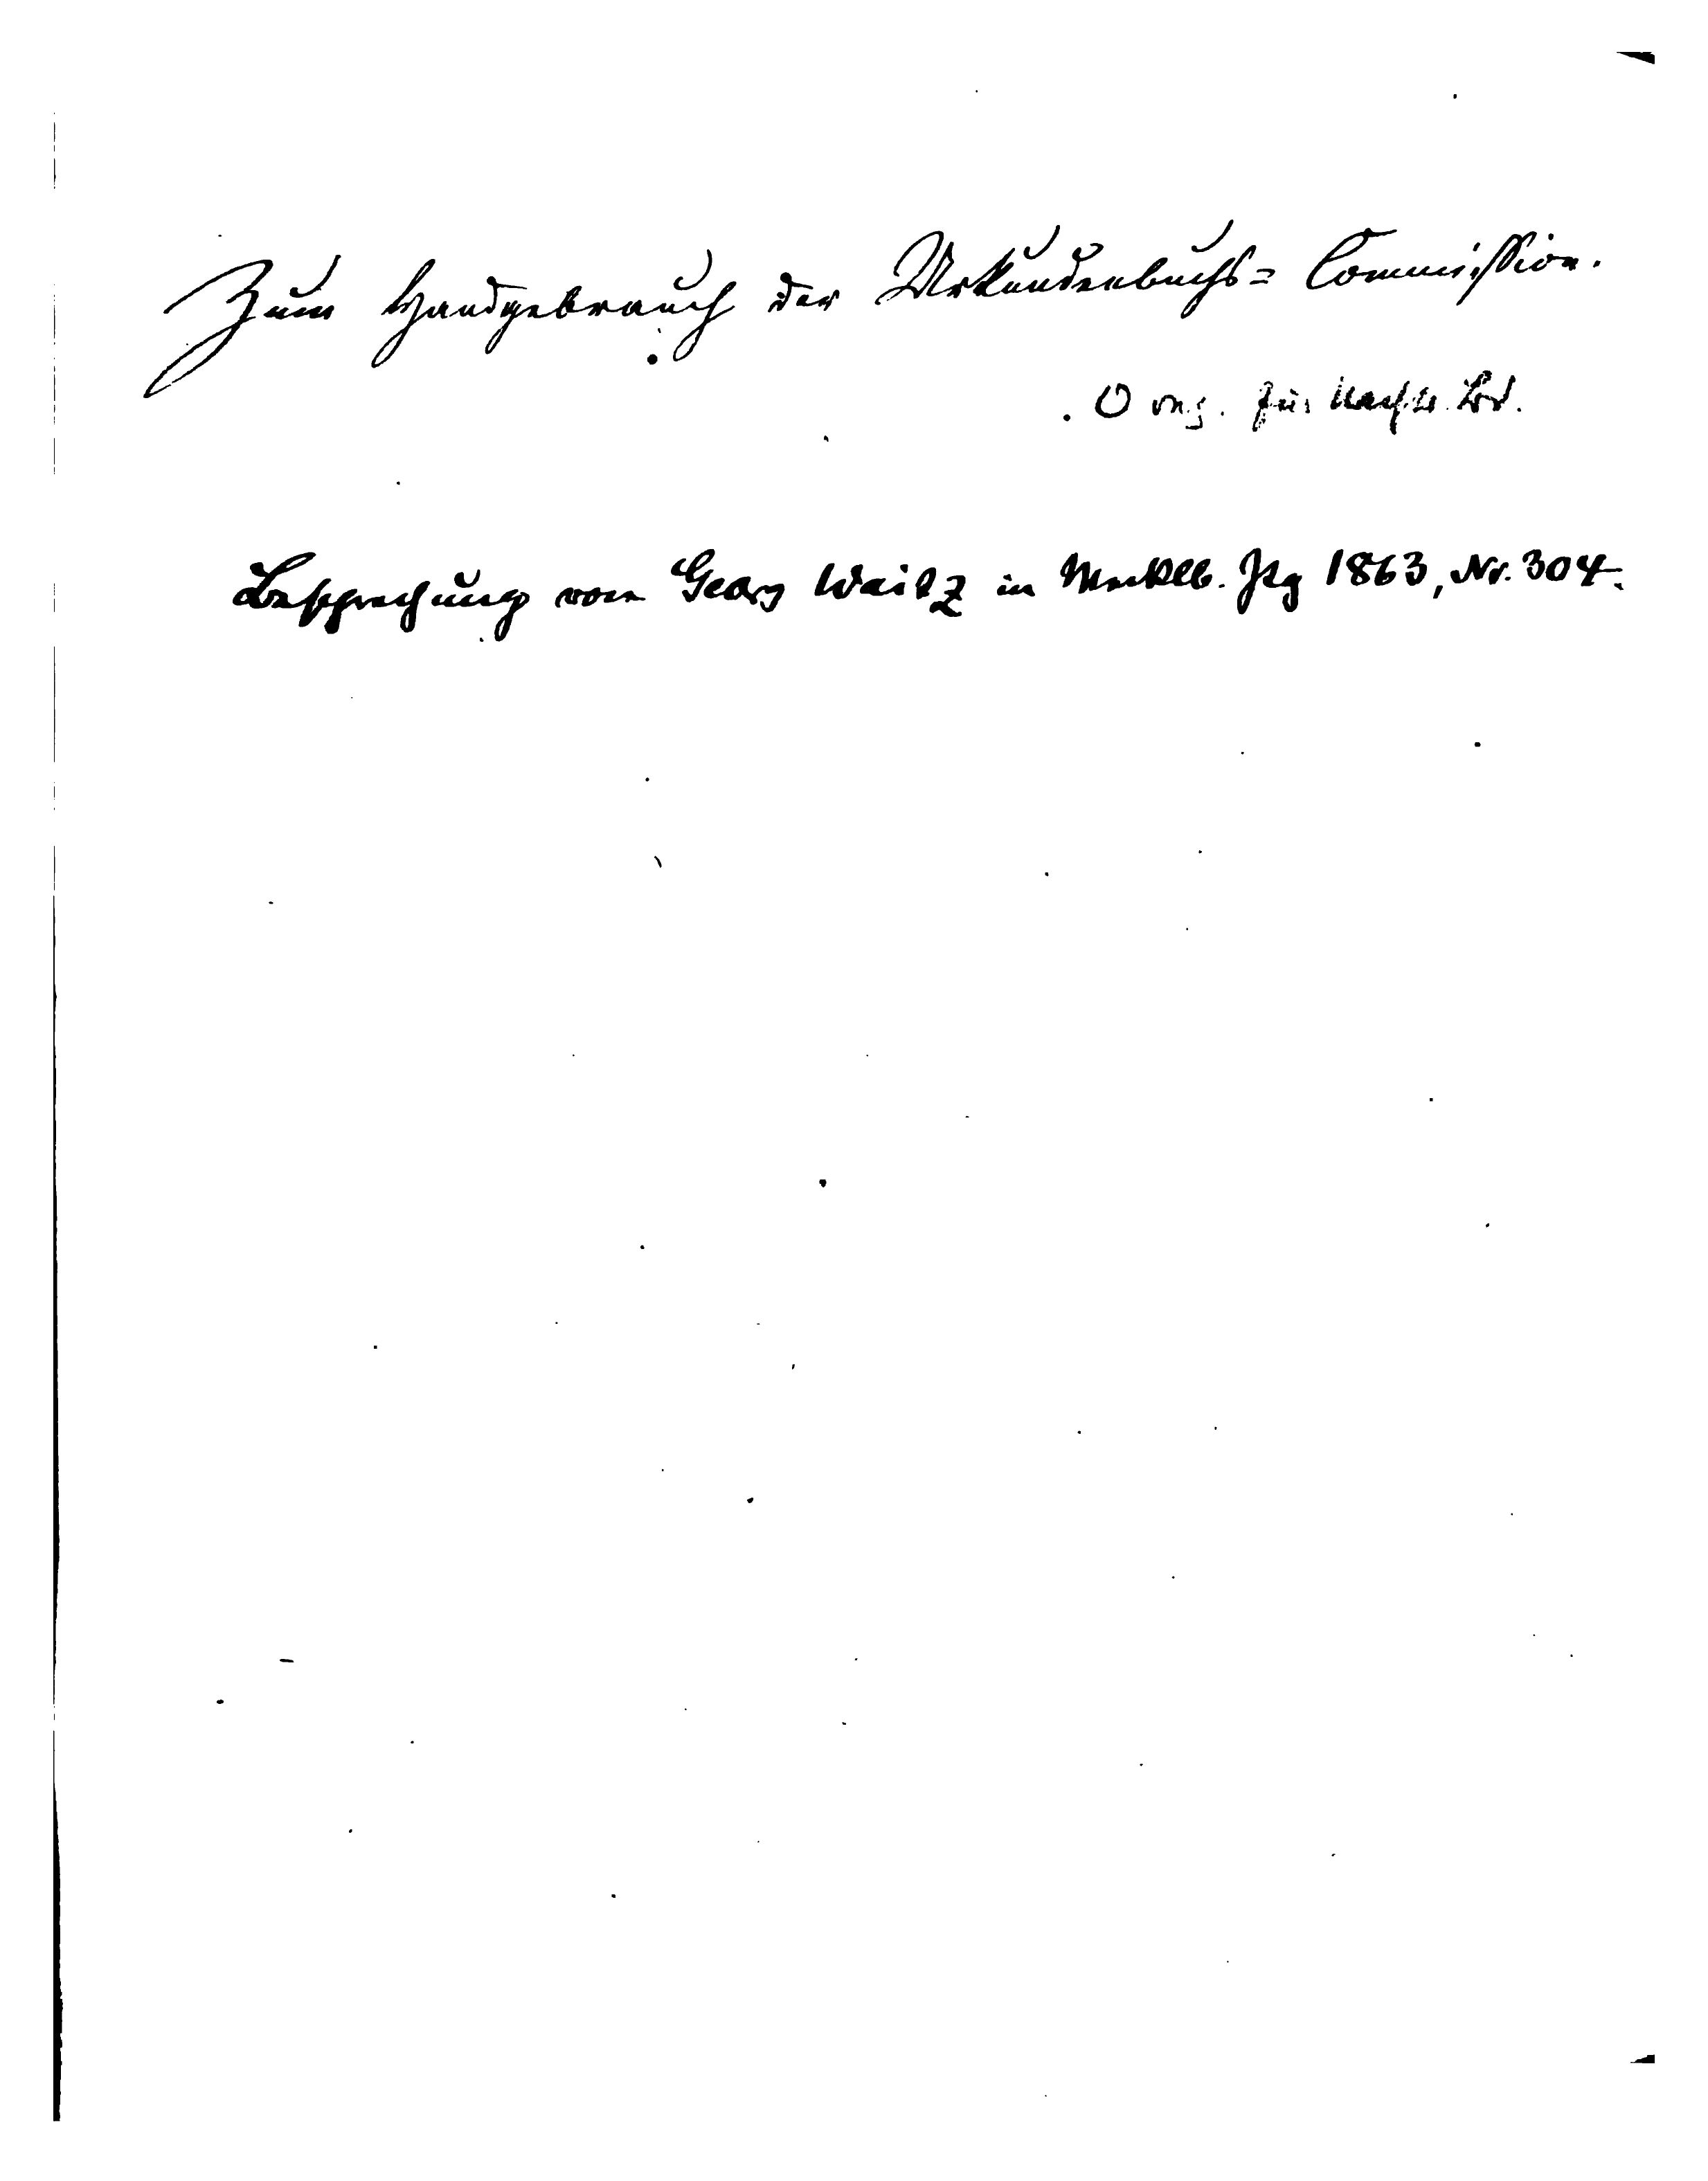 Zum Handgebrauch der Urkundenbuchs= Commission.
O für Nachtr. Bd.
Besprechung von Georg Waitz in Mecklb. Ztg 1863, Nr. 304.